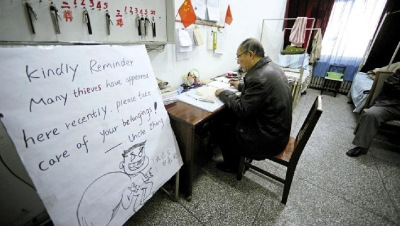 Kindly Reminder
Many thieves have appeared
here recently, please take
care of your belongings!
— Uncle Zhang